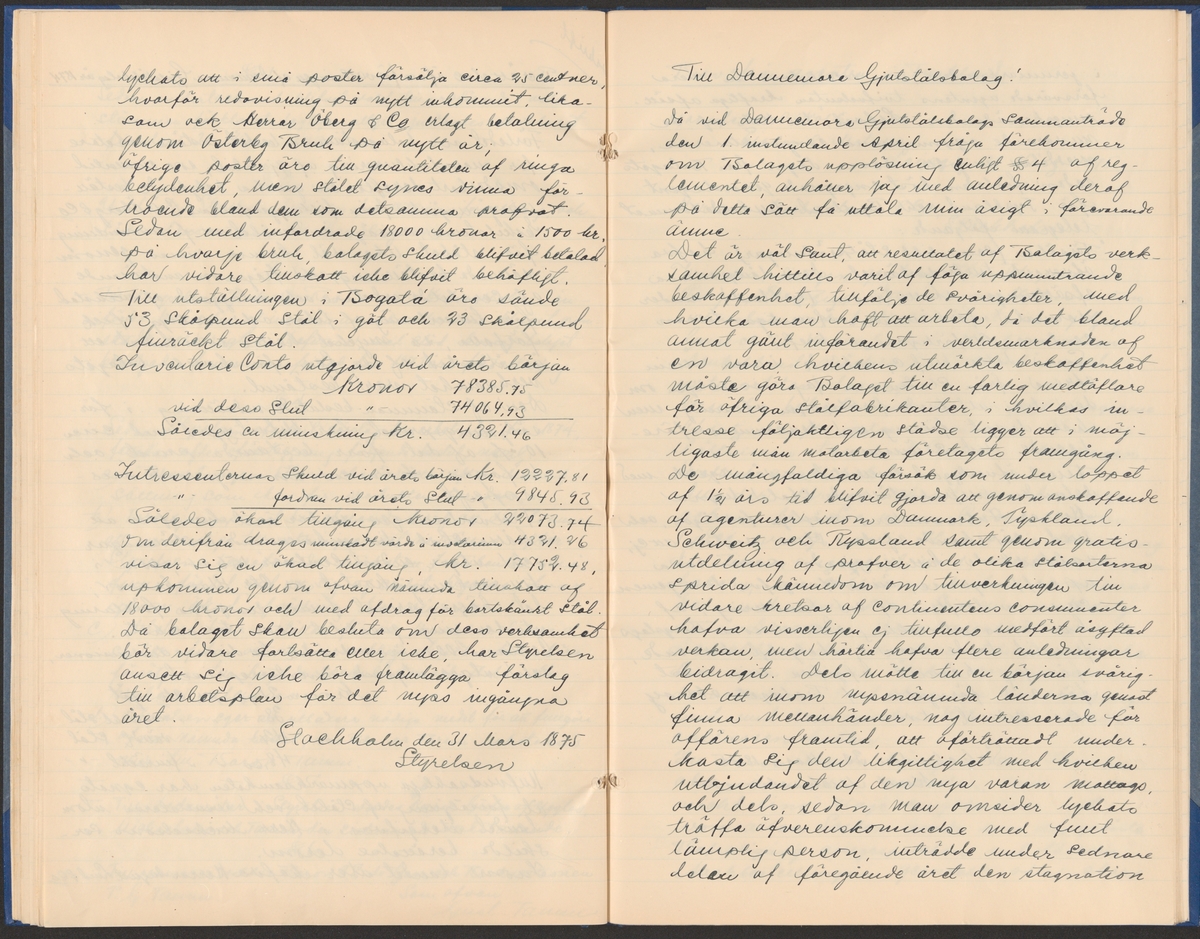 lyckats att i små poster försälja circa 25 centner,
hvarför redovisning på nytt inkommit, lika-
som ock Herrar Öberg & Co erlagt betalning
genom Österby Bruk på nytt år;
öfrige poster äro till quantiteten af ringa
betydenhet, men stålet synes vinna för-
troende bland dem som detsamma profvat.
Sedan med infordrade 18000 kronor à 1500 kr.
på hvarje bruk, bolagets skuld blifvit betalad,
har vidare tillskott icke blifvit behöfligt.
Till utställningen i Bogatá äro sände
53 Skålpund Stål i göt och 23 Skålpund
smräckt Stål.
Inventarie Conto utgjorde vid årets början
Kronor 78385.75
vid dess Slut " 74064.93
Således en minskning Kr. 4321.46
Intressenternas Skuld vid årets början Kr. 12227.81
" fordran vid årets Slut " 9845.93
Således ökad tillgång Kronor 22073.74
om derifrån drages minskadt värde å inventarium 4321.26
visar sig en ökad tillgång, Kr. 17752.48,
uppkommen genom ofvan nämnda tillskott af
18000 kronor och med afdrag för bortskänkt Stål.
Då bolaget skall besluta om dess verksamhet
bör vidare fortsätta eller icke, har Styrelsen
ansett sig icke böra framlägga förslag
till arbetsplan för det nyss ingångna
året.
Stockholm den 31 Mars 1875
Styrelsen
Till Dannemora Gjutstålsbolag!
Då vid Dannemora Gjutstålsbolags Sammanträde
den 1. instundande April fråga förekommer
om Bolagets upplösning enligt § 4 af reg-
lementet, anhåller jag med anledning deraf
på detta sätt få uttala min åsigt i förevarande
ämne.
Det är väl sant, att resultatet af Bolagets verk-
samhet hittills varit af föga uppmuntrande
beskaffenhet, tillfölje de svårigheter, med
hvilka man haft att arbeta, då det bland
annat gällt införandet i verldsmarknaden af
en vara, hvilkens utmärkta beskaffenhet
måste göra Bolaget till en farlig medtäflare
för öfriga stålfabrikanter, i hvilkas in-
tresse följaktligen städse ligger att i möj-
ligaste mån motarbeta företagets framgång.
De mångfaldiga försök som under loppet
af 1½ års tid blifvit gjorda att genom anskaffande
af agenturer inom Danmark, Tyskland,
Schweitz och Ryssland samt genom gratis-
utdelning af profver i de olika stålsorterna
sprida kännedom om tillverkningen till
vidare kretsar af Continentens consumenter
hafva visserligen ej tillfullo medfört åsyftad
verkan, men härtill hafva flere anledningar
bidragit. Dels mötte till en början svårig-
het att inom nyssnämnda länderna genast
finna mellanhänder, nog intresserade för
affärens framtid, att oförtrutadt under-
kasta sig den likgiltighet med hvilken
utbjudandet af den nya varan mottags,
och dels, sedan man omsider lyckats
träffa öfverenskommelse med fullt
lämplig person, inträdde under sednare
delen af föregående året den stagnation